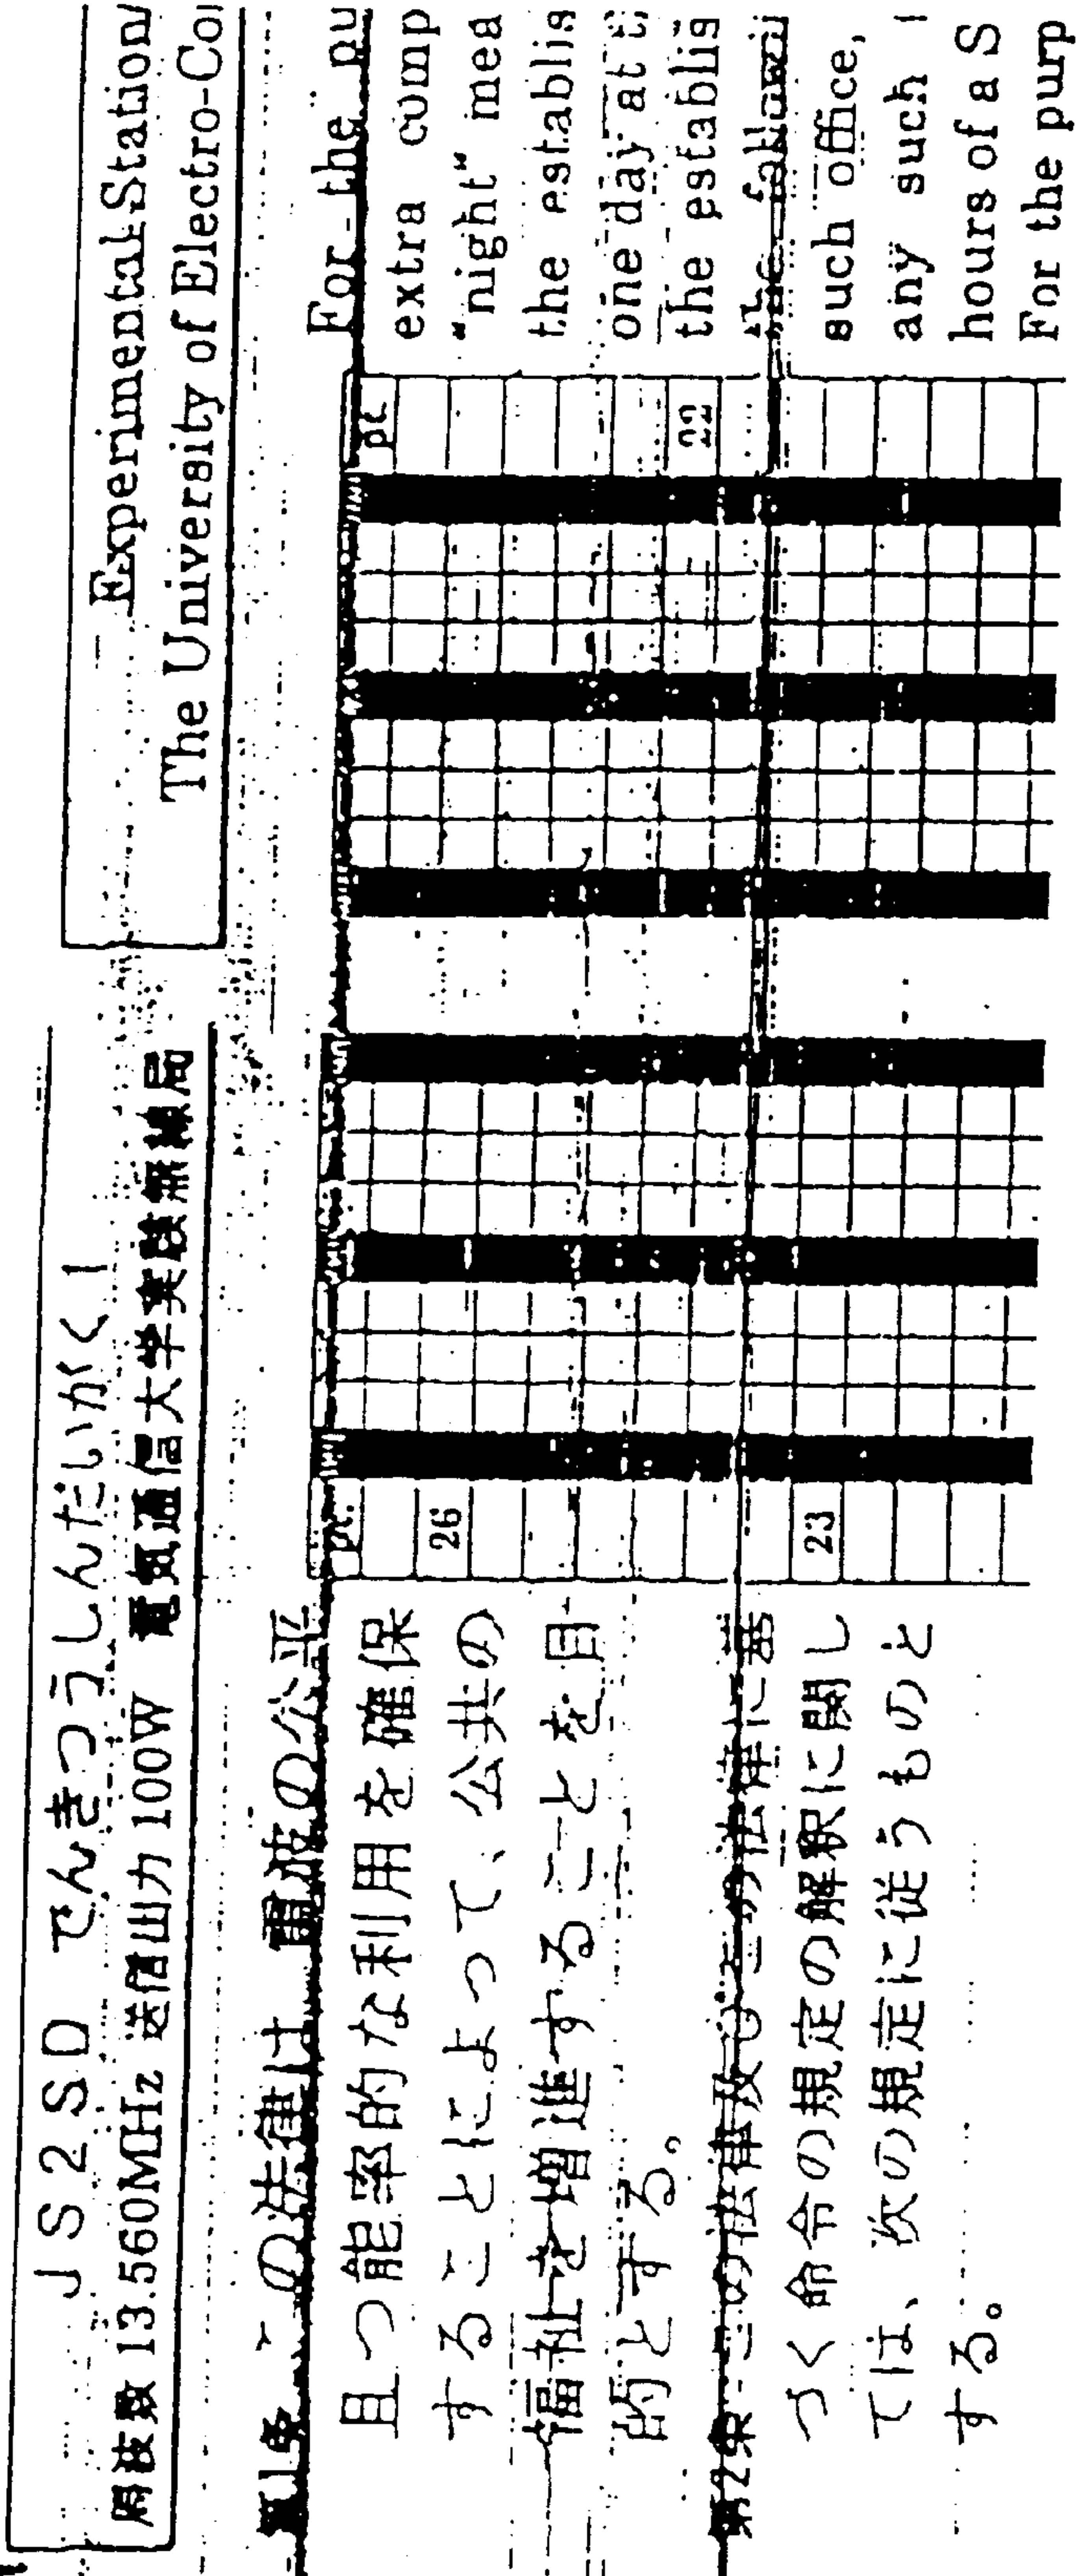 JS2SD でんきつうしんだいがく1
周波数 13.560MHz 送信出力 100W 電気通信大学実験無線局
Experimental Station
The University of Electro-Co
第1条 この法律は 電波の公平
且つ能率的な利用を確保
することによって、公共の
福祉を増進することを目
的とする。
第2条 この法律及びこの法律に基
づく命令の規定の解釈に関し
ては、次の規定に従うものと
する。
pt.
26
23
22
For the pu
extra comp
"night" mea
the establis
one day at t
the establis
the followi
such office,
any such
hours of a S
For the purp